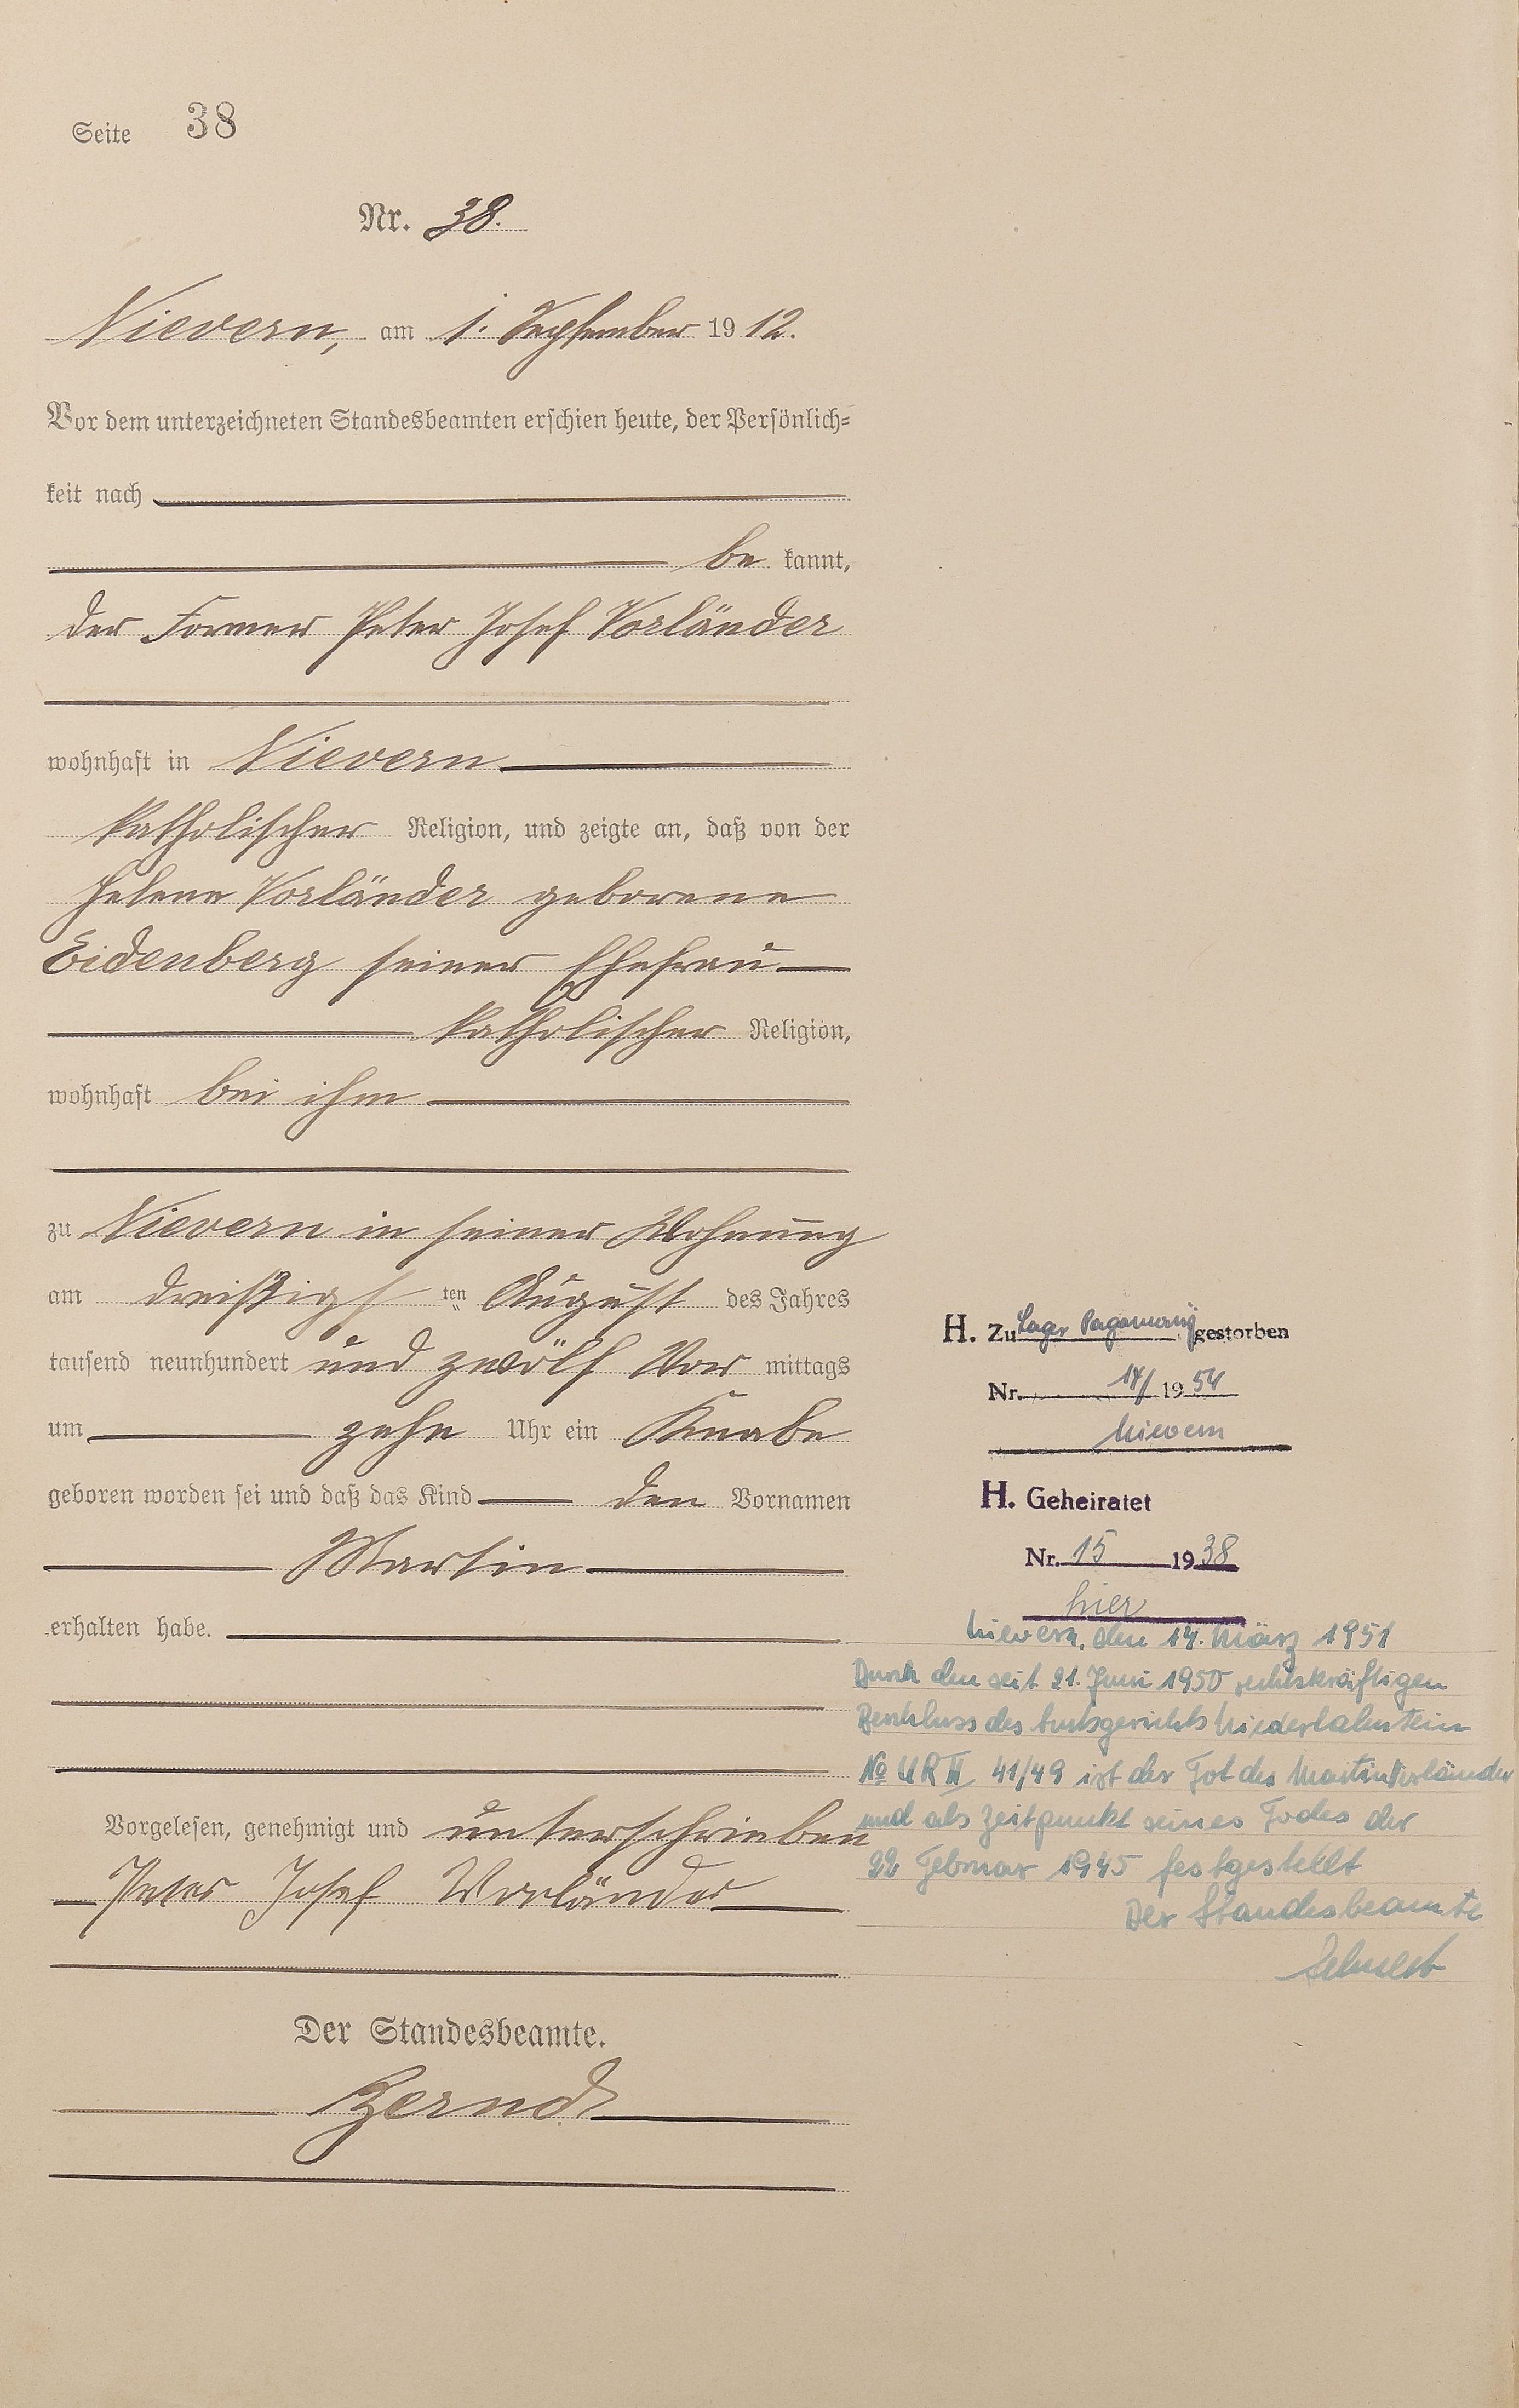 Seite 38
Nr. 38.
Nievern, am 1. September 1912.
Vor dem unterzeichneten Standesbeamten erschien heute, der Persönlich=
keit nach
be kannt,
der Former Peter Josef Vorländer
wohnhaft in Nievern
katholischer Religion, und zeigte an, daß von der
Helene Vorländer geborene
Eidenberg seiner Ehefrau
katholischer Religion,
wohnhaft bei ihm
zu Nievern in seiner Wohnung
am dreißigsten August des Jahres
tausend neunhundert und zwölf Vor mittags
um zehn Uhr ein Knabe
geboren worden sei und daß das Kind den Vornamen
Martin
erhalten habe.
Vorgelesen, genehmigt und unterschrieben
Peter Josef Vorländer
Der Standesbeamte.
H. Zu Lager gestorben
Nr. 14/ 1954
Nievern
H. Geheiratet
Nr. 15 1938
hier
Nievern, den 14. März 1951
Durch den seit 21. Juni 1950 rechtskräftigen
Beschluss des Amtsgerichts Niederlahnstein
No UR II 41/49 ist der Tot des Martin Vorländer
und als Zeitpunkt seines Todes der
22 Februar 1945 festgestellt
Der Standesbeamte